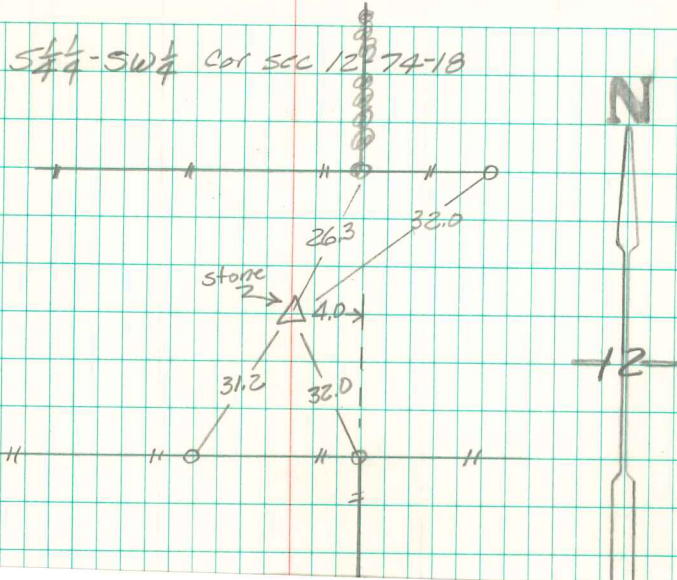 S 1/4 1/4 - SW 1/4 Cor sec 12-74-18
N
26.3
32.0
stone
4.0
12
31.2
32.0